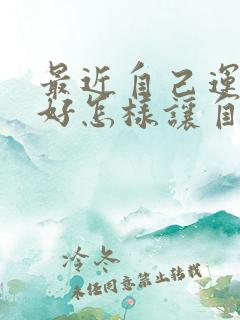 最近自己運
好怎樣讓自
冷冬
未经同意禁止转载